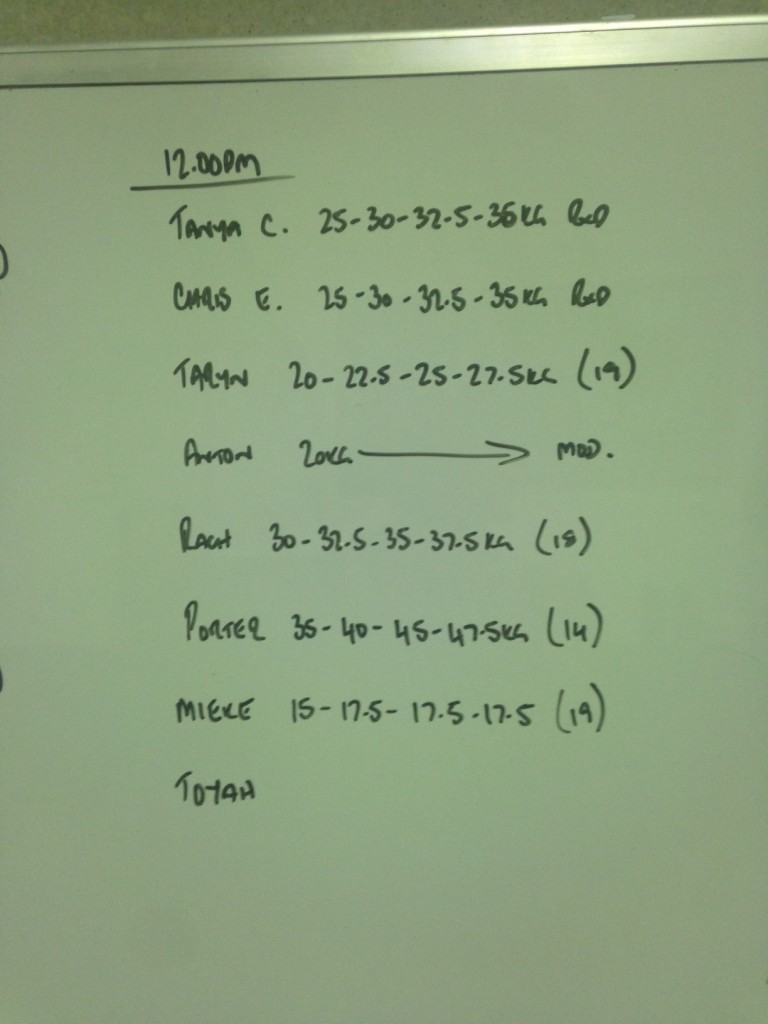 12.00PM
TANYA C. 25-30-32.5-35KG RXD
CHRIS E. 25-30-32.5-35KG RXD
TARYN 20-22.5-25-27.5KG (19)
ANTON 20KG → MOD.
RACH 30-32.5-35-37.5KG (18)
PORTER 35-40-45-47.5KG (14)
MIEKE 15-17.5-17.5-17.5 (19)
TOYAH